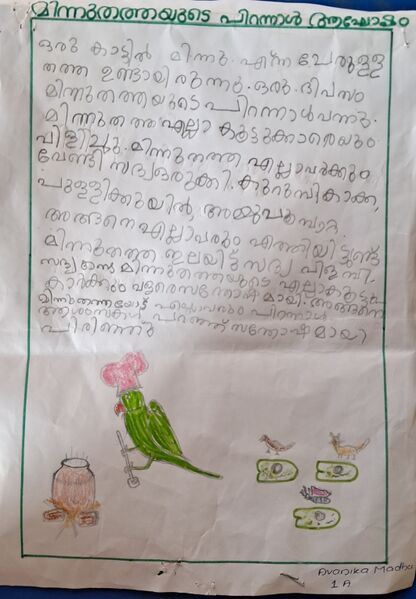 മിന്നുതത്തയുടെ പിറന്നാൾ ആഘോഷം
ഒരു കാട്ടിൽ മിന്നു എന്ന പേരുള്ള
തത്ത ഉണ്ടായിരുന്നു. ഒരു ദിവസം
മിന്നുതത്തയുടെ പിറന്നാൾ വന്നു.
മിന്നുതത്ത എല്ലാ കൂട്ടുകാരെയും
വിളിച്ചു. മിന്നുതത്ത എല്ലാവർക്കും
വേണ്ടി സദ്യ ഒരുക്കി. കുറുമ്പികാക്ക,
പുള്ളിക്കുയിൽ, അമ്മുപൂമ്പാറ്റ
അങ്ങനെ എല്ലാവരും എത്തിയിട്ടുണ്ട്
മിന്നുതത്ത ഇലയിട്ട് സദ്യ വിളമ്പി.
സദ്യ മിന്നുതത്തയുടെ എല്ലാകൂട്ടു
കാർക്കും വളരെ സന്തോഷമായി. അങ്ങനെ
മിന്നുതത്തയോട് എല്ലാവരും പിറന്നാൾ
ആശംസകൾ പറഞ്ഞ് സന്തോഷമായി
പിരിഞ്ഞു
Avanika Madhu
1 A